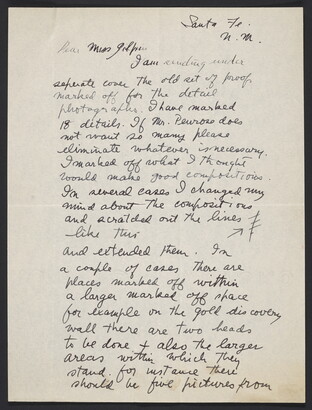 Santa Fe.
N. M.
Dear Miss Gilpin
I am sending under
seperate cover the old set of proofs
marked off for the detail
photographer. I have marked
18 details. If Mr. Penrose does
not want so many please
eliminate whatever is necessary.
I marked off what I thought
would make good compositions.
In several cases I changed my
mind about the compositions
and scratched out the lines
like this
and extended them. In
a couple of cases there are
places marked off within
a larger marked off space
for example on the Gold discovery
wall there are two heads
to be done + also the larger
areas within which they
stand. for instance there
should be five pictures from